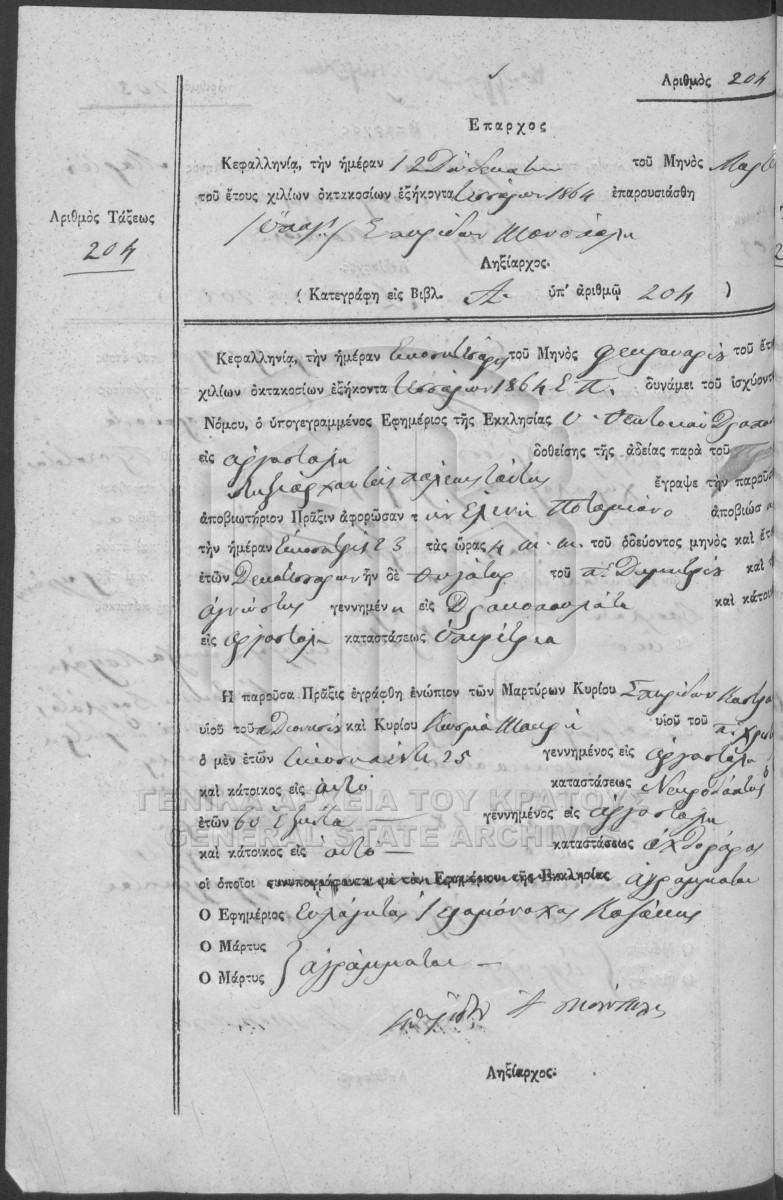 Αριθμὸς 204
Επαρχος
Κεφαλληνίᾳ, τὴν ἡμέραν 12 Δώδεκατη τοῦ Μηνὸς
τοῦ ἔτους χιλίων ὀκτακοσίων ἑξήκοντα τεσσάρων 1864 ἐπαρουσιάσθη
Αριθμὸς Τάξεως
204
Σπυρίδων
Ληξίαρχος.
( Κατεγράφη εἰς Βιβλ. Α ὑπ' ἀριθμῷ 204 )
Κεφαλληνίᾳ, τὴν ἡμέραν τοῦ Μηνὸς Φεβρουαρίου τοῦ
χιλίων ὀκτακοσίων ἑξήκοντα τεσσάρων 1864 Ε.Π. δυνάμει τοῦ ἰσχύοντ
Νόμου, ὁ ὑπογεγραμμένος Εφημέριος τῆς Εκκλησίας
εἰς Αργοστόλι δοθείσης τῆς ἀδείας παρὰ τοῦ
Ληξιάρχου τῆς πόλεως ταύτης ἔγραψε τὴν παροῦσ
ἀποβιωτήριον Πρᾶξιν ἀφορῶσαν τὴν Ελένη Ποταμιάνο ἀποβιώσ
τὴν ἡμέραν Εικοσιτρις 23 τὰς ὥρας 4 μ.μ. τοῦ ὁδεύοντος μηνὸς καὶ ἔτ
ἐτῶν Δεκατεσσάρων ἦν δὲ θυγάτηρ τοῦ π. Δημητρίου καὶ
αγνώστης γεννημένη εἰς Δρακοπουλάτα καὶ κάτοι
εἰς Αργοστόλι καταστάσεως υπηρέτρια
Η παροῦσα Πρᾶξις ἐγράφθη ἐνώπιον τῶν Μαρτύρων Κυρίου Σπυρίδων
υἱοῦ τοῦ π. Διονυσίου καὶ Κυρίου Κοσμά Μακρή υἱοῦ τοῦ π.
ὁ μὲν ἐτῶν εικοσιπέντε 25 γεννημένος εἰς Αργοστόλι
καὶ κάτοικος εἰς αυτό καταστάσεως Νεκροθάπτης
ἐτῶν 60 εξήντα γεννημένος εἰς Αργοστόλι
καὶ κάτοικος εἰς αυτό καταστάσεως
οἱ ὁποῖοι συνυπογράφονται μὲ τὸν Εφημέριον τῆς Εκκλησίας αγράμματοι
Ο Εφημέριος Ευλάγιος Ιερομόναχος
Ο Μάρτυς
Ο Μάρτυς } αγράμματοι
Ληξίαρχος.
ΓΕΝΙΚΑ ΑΡΧΕΙΑ ΤΟΥ ΚΡΑΤΟΥΣ
GENERAL STATE ARCHIVES